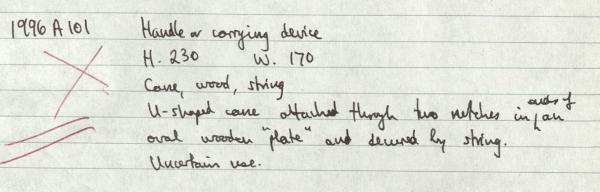 1996 A 101 Handle or carrying device
H. 230 W. 170
Cane, wood, string
U-shaped cane attached through two notches in ends of an
oval wooden "plate" and secured by string.
Uncertain use.